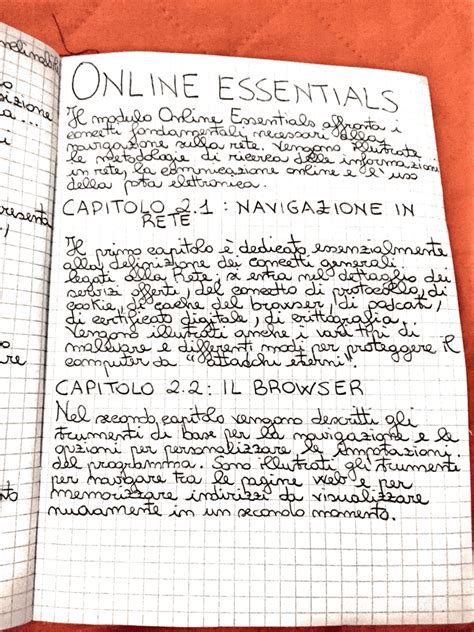 ONLINE ESSENTIALS
Il modulo Online Essentials affronta i
concetti fondamentali necessari alla
navigazione sulla rete. Vengono illustrate
le metodologie di ricerca delle informazioni
in rete, la comunicazione online e l'uso
della posta elettronica.
CAPITOLO 2.1 : NAVIGAZIONE IN
RETE
Il primo capitolo è dedicato essenzialmente
alla definizione dei concetti generali
legati alla Rete; si entra nel dettaglio dei
servizi offerti, del concetto di protocollo, di
cookie, di cache del browser, di podcast,
di certificato digitale, di crittografia.
Vengono illustrati anche i vari tipi di
malware e differenti modi per proteggere il
computer da "attacchi esterni".
CAPITOLO 2.2: IL BROWSER
Nel secondo capitolo vengono descritti gli
strumenti di base per la navigazione e le
opzioni per personalizzare le impostazioni
del programma. Sono illustrati gli strumenti
per navigare tra le pagine web e per
memorizzare indirizzi da visualizzare
nuovamente in un secondo momento.